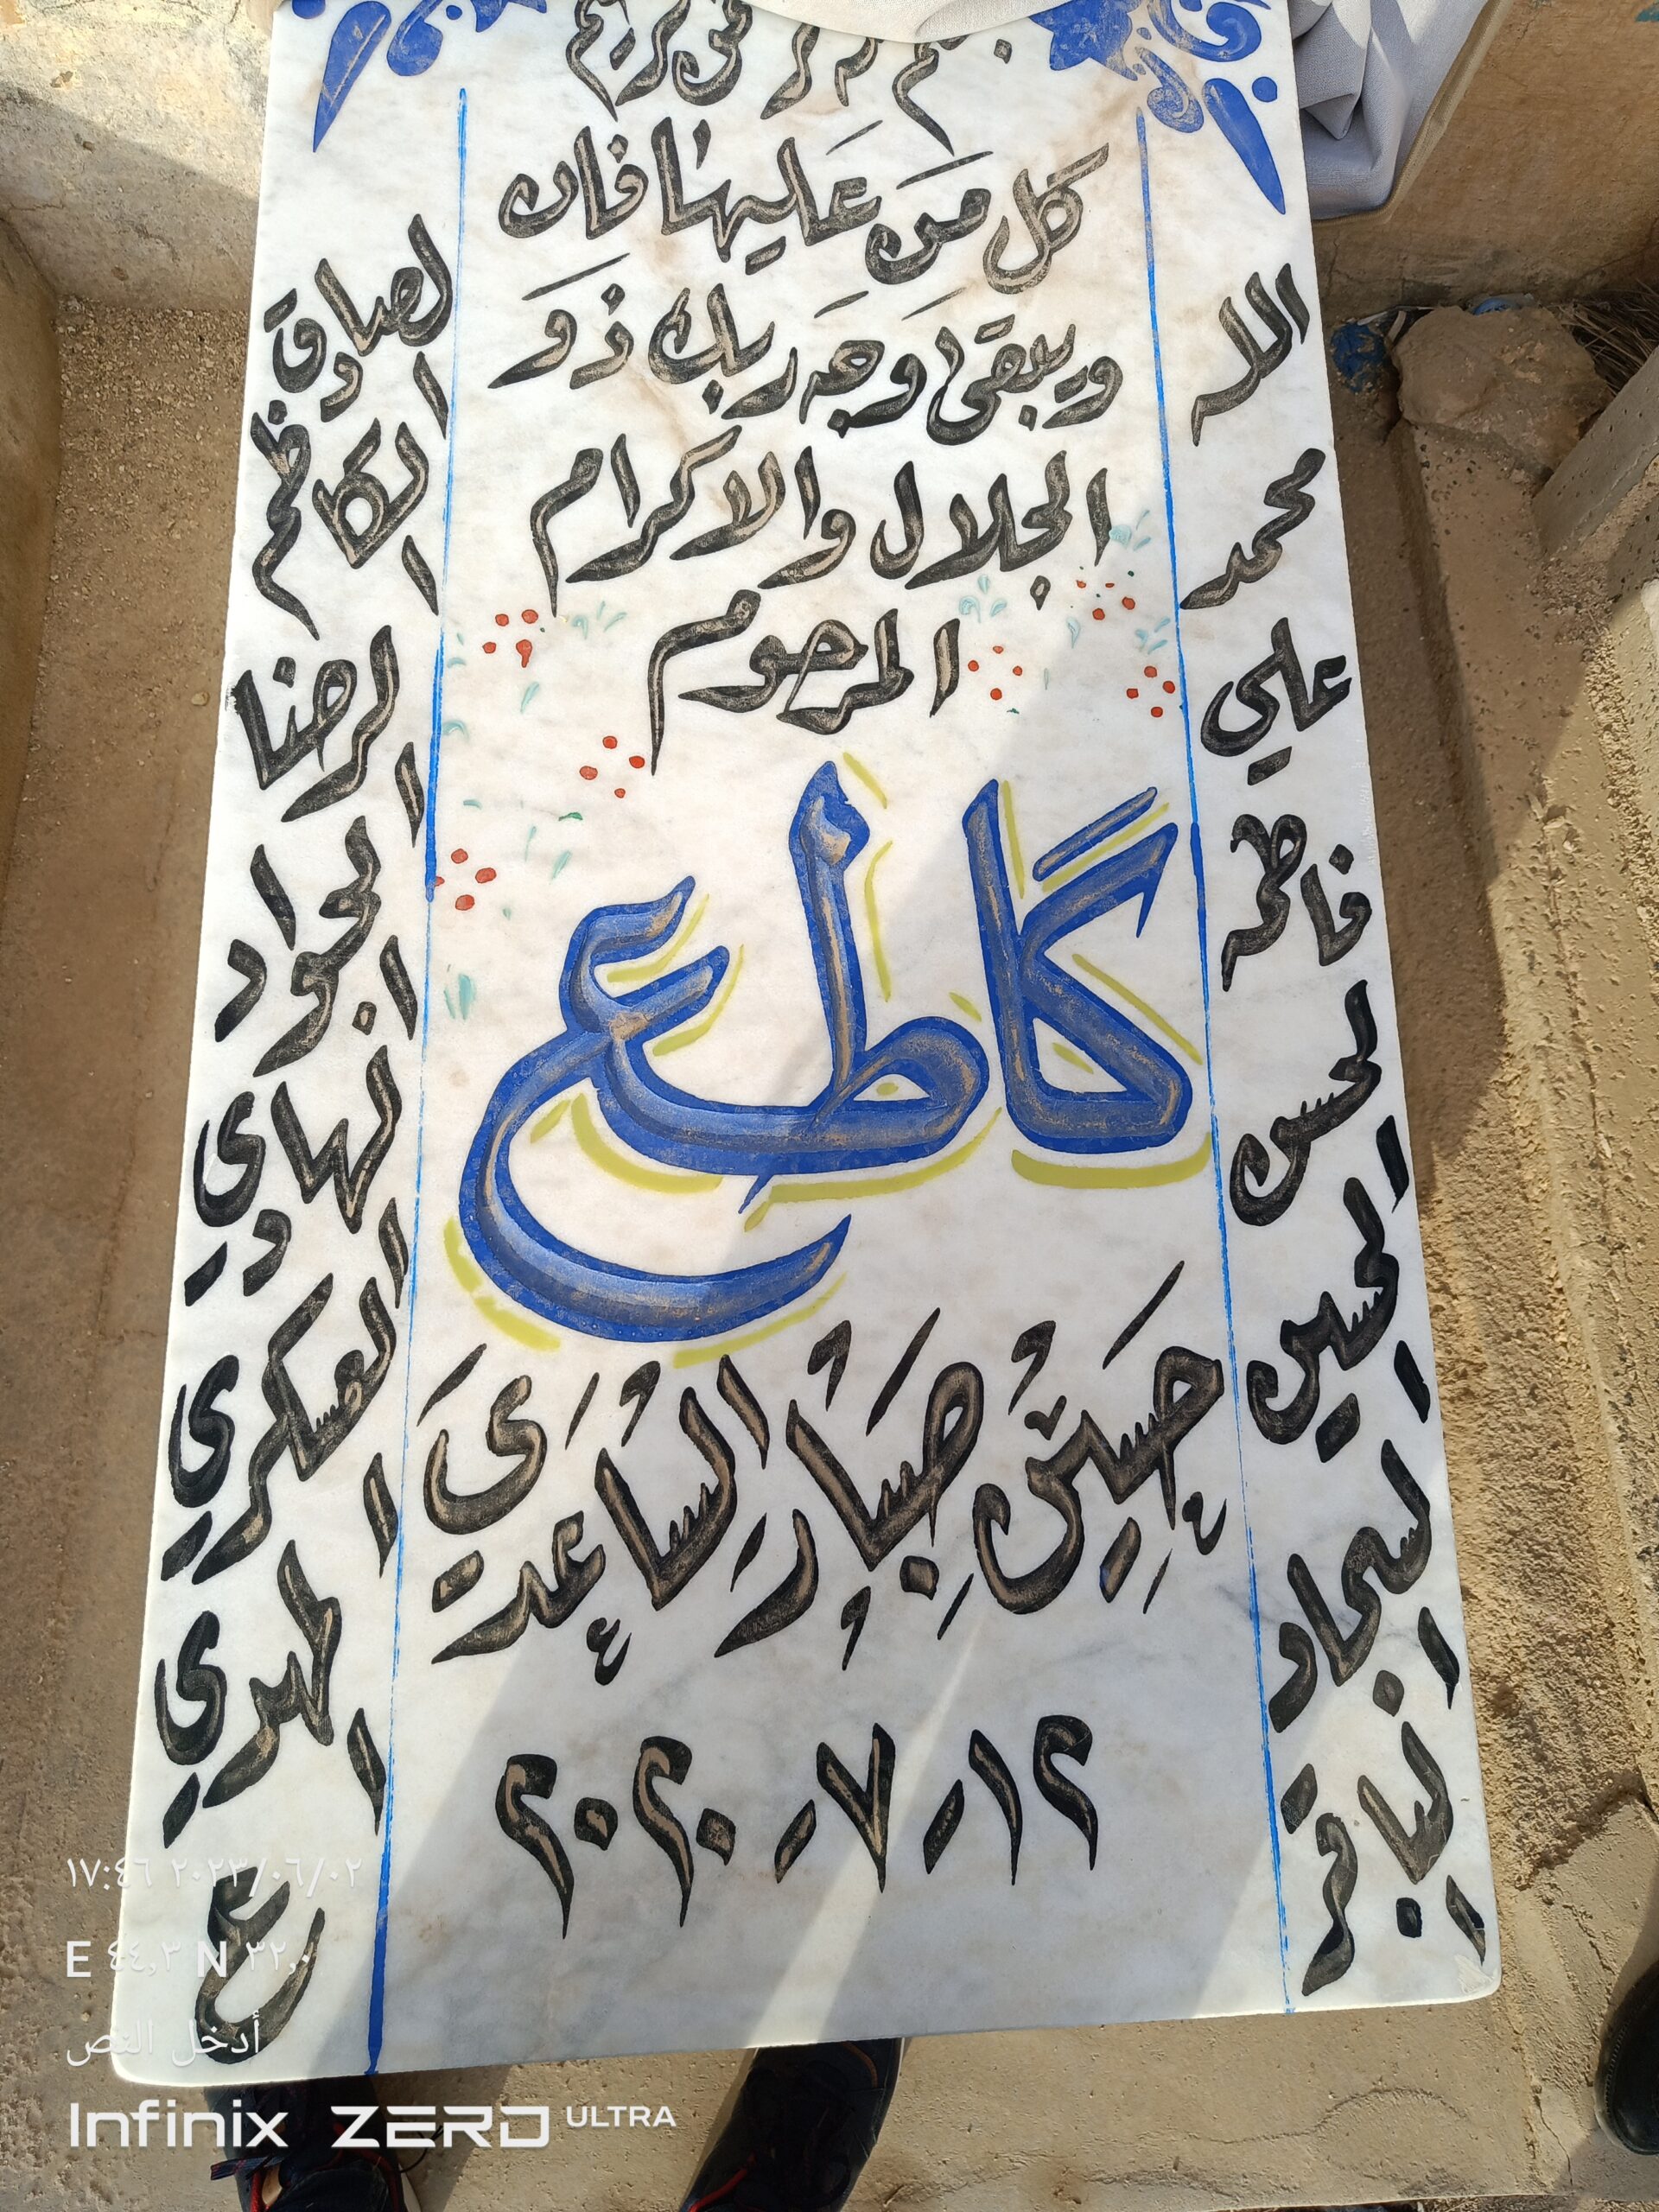 كل من عليها فان
ويبقى وجه ربك ذو
الجلال والاكرام
المرحوم
گاطع
حسين جبار الساعدي
١٢-٧-٢٠٢٠
الله
محمد
علي
فاطمه
الحسن
الحسين
السجاد
الباقر
الصادق
الكاظم
الرضا
الجواد
الهادي
العسكري
المهدي
ع
١٧:٤٦ ٢٠٢٣/٠٦/٠٢
E ٤٤,٣ N ٣٢,٠
أدخل النص
Infinix ZERO ULTRA